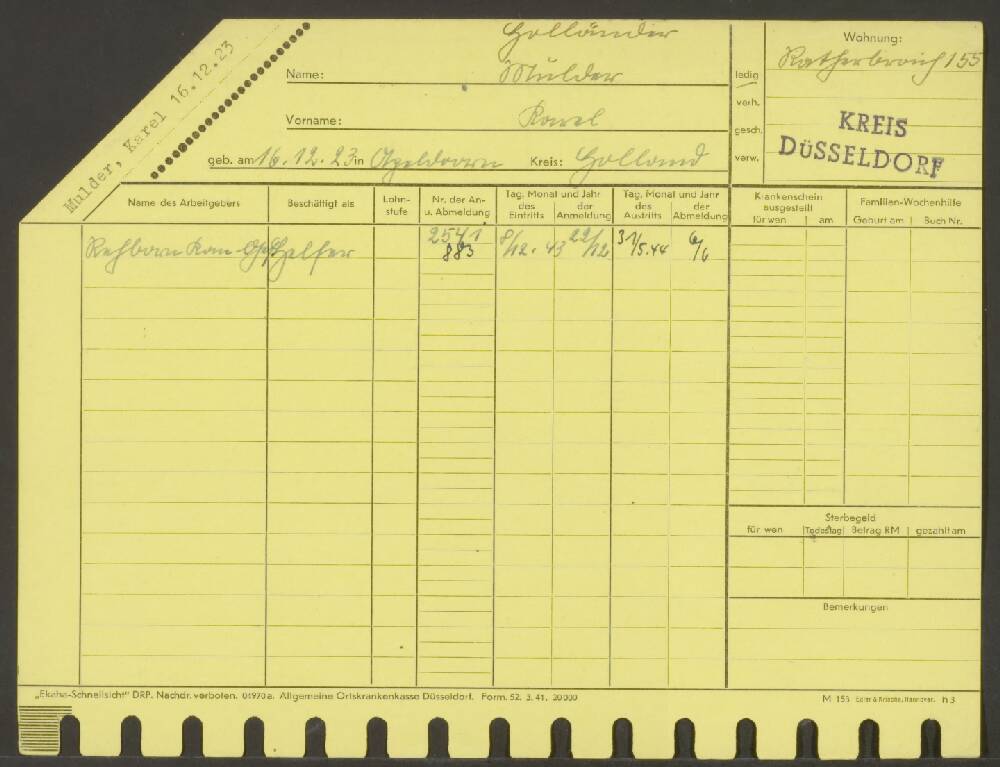 Mulder, Karel 16.12.23
Holländer
Name: Mülder
Vorname: Karel
geb. am 16.12.23 in Apeldoorn Kreis: Holland
ledig
verh.
gesch.
verw.
Wohnung:
Ratherbroich 155
KREIS
DÜSSELDORF
Name des Arbeitgebers
Beschäftigt als
Lohn-
stufe
Nr. der An-
u. Abmeldung
Tag, Monat und Jahr
des Eintritts
der Anmeldung
Tag, Monat und Jahr
des Austritts
der Abmeldung
Krankenschein
ausgestellt
für wen | am
Familien-Wochenhilfe
Geburt am | Buch Nr.
Rehborn Helfer 2541 8/12. 43 22/12 31/5.44 6/6
883
Sterbegeld
für wen | Todestag | Betrag RM | gezahlt am
Bemerkungen
„Ekaha-Schnellsicht" DRP. Nachdr. verboten. 04970a. Allgemeine Ortskrankenkasse Düsseldorf. Form. 52. 3. 41. 20000
M 153 Hannover. h 3